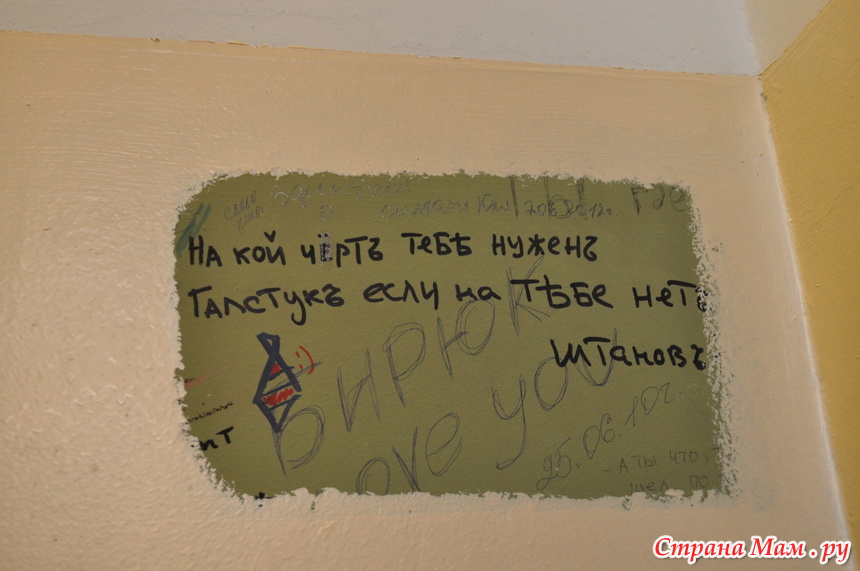 НА КОЙ ЧЁРТЪ ТЕБѢ НУЖЕНЪ
ГАЛСТУКЪ ЕСЛИ НА ТѢБЕ НЕТЪ
ШТАНОВЪ
БИРЮК
ove you
25.06.10г.
- А ТЫ ЧТО,
шел по
Страна Мам.ру